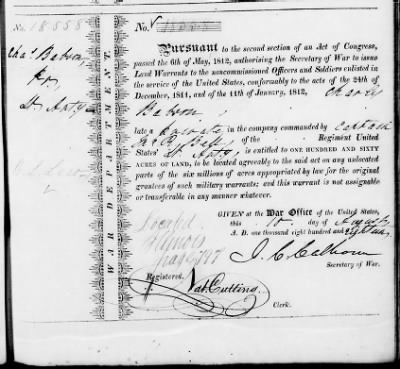 No. 18558
No.
Chas. Babson,
PURSUANT to the second section of an Act of Congress,
passed the 6th of May, 1812, authorising the Secretary of War to issue
Land Warrants to the noncommissioned Officers and Soldiers enlisted in
the service of the United States, conformably to acts of the 24th of
December, 1811, and of the 11th of January, 1812, Charles
Babson
late a private in the company commanded by Captain
of the Regiment United
States' Lt. Arty. is entitled to ONE HUNDRED AND SIXTY
ACRES OF LAND, to be located agreeably to the said act on any unlocated
parts of the six millions of acres appropriated by law for the original
grantees of such military warrants; and this warrant is not assignable
or transferable in any manner whatever.
WAR DEPARTMENT.
GIVEN at the War Office of the United States,
this 10 day of August
A. D. one thousand eight hundred and
Located
Illinois
J. C. Calhoun
Secretary of War.
Registered.
Nat. Cutting
Clerk.